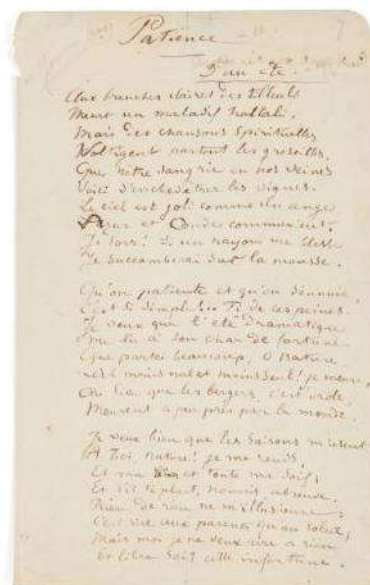 Patience
D'un été.
Aux branches claires des tilleuls
Meurt un maladif hallali.
Mais des chansons spirituelles
Voltigent partout les groseilles.
Que notre sang rie en nos veines
Voici s'enchevêtrer les vignes.
Le ciel est joli comme un ange
Azur et Onde communient.
Je sors! Si un rayon me blesse
Je succomberai sur la mousse.
Qu'on patiente et qu'on s'ennuie,
C'est si simple!... Fi de ces peines.
Je veux que l'été dramatique
Me lie à son char de fortune.
Que par toi beaucoup, ô Nature
moins nul et moins seul! je meure,
Au lieu que les bergers, c'est drôle,
Meurent à peu près par le monde.
Je veux bien que les saisons m'usent
A Toi, Nature! je me rends,
Et ma faim et toute ma soif;
Et s'il te plaît, nourris, abreuve.
Rien de rien ne m'illusionne;
C'est rire aux parents qu'au soleil;
Mais moi je ne veux rire à rien
Et libre soit cette infortune.